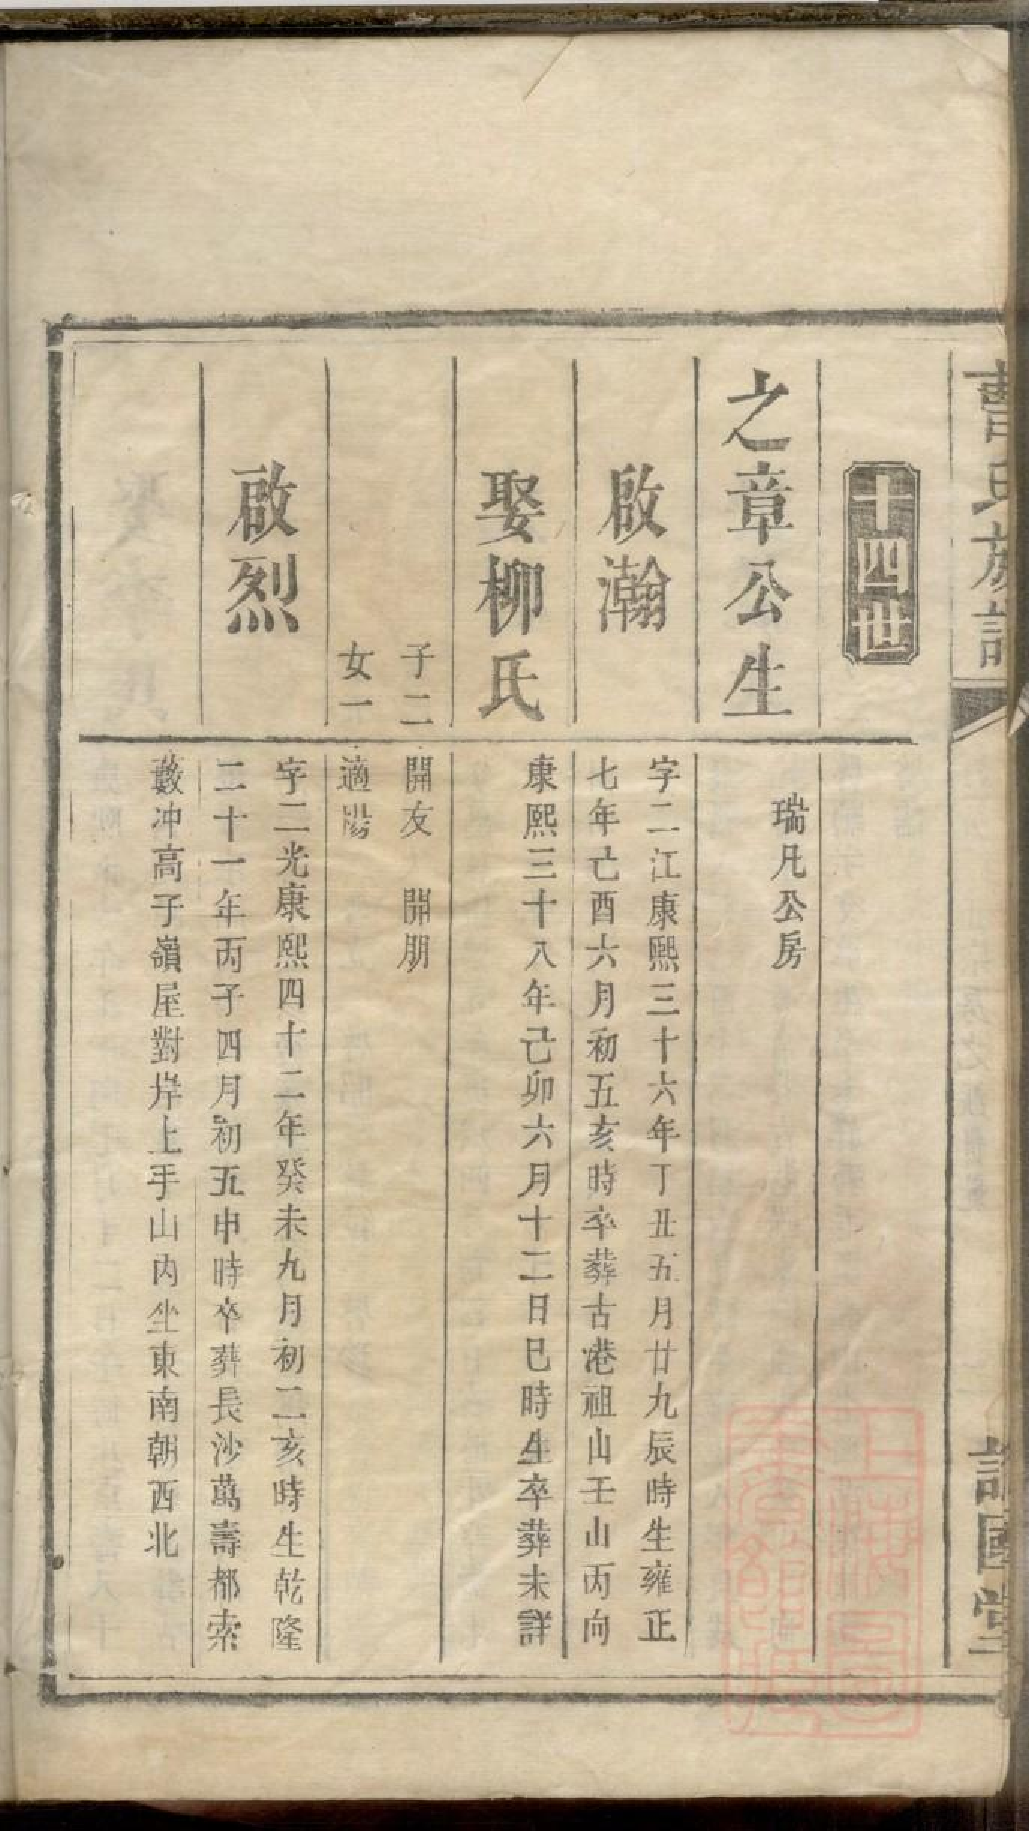 曹氏族譜
譜國堂
十四世
瑞凡公房
之章公生
啟瀚
字二江康熙三十六年丁丑五月廿九辰時生雍正
七年己酉六月初五亥時卒葬古港祖山壬山丙向
娶柳氏
康熙三十八年己卯六月十二日巳時生卒葬未詳
子二
開友 開朋
女一
適陽
啟烈
字二光康熙四十二年癸未九月初二亥時生乾隆
二十一年丙子四月初五申時卒葬長沙萬壽都索
藪冲高子嶺屋對岸上手山內坐東南朝西北